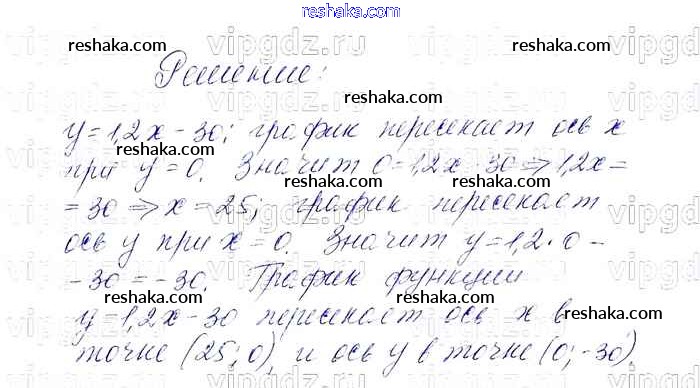 reshaka.com
reshaka.com vipgdz.ru reshaka.com
Решение:
reshaka.com
y=1,2x-30; график пересекает ось x
reshaka.com
при y=0. Значит 0=1,2x-30⇒1,2x=
reshaka.com reshaka.com
=30⇒x=25; график пересекает
reshaka.com
ось y при x=0. Значит y=1,2·0-
reshaka.com reshaka.com
-30=-30. График функции
reshaka.com reshaka.com
y=1,2x-30 пересекает ось x в
точке (25; 0), и ось y в точке (0; -30).
reshaka.com reshaka.com